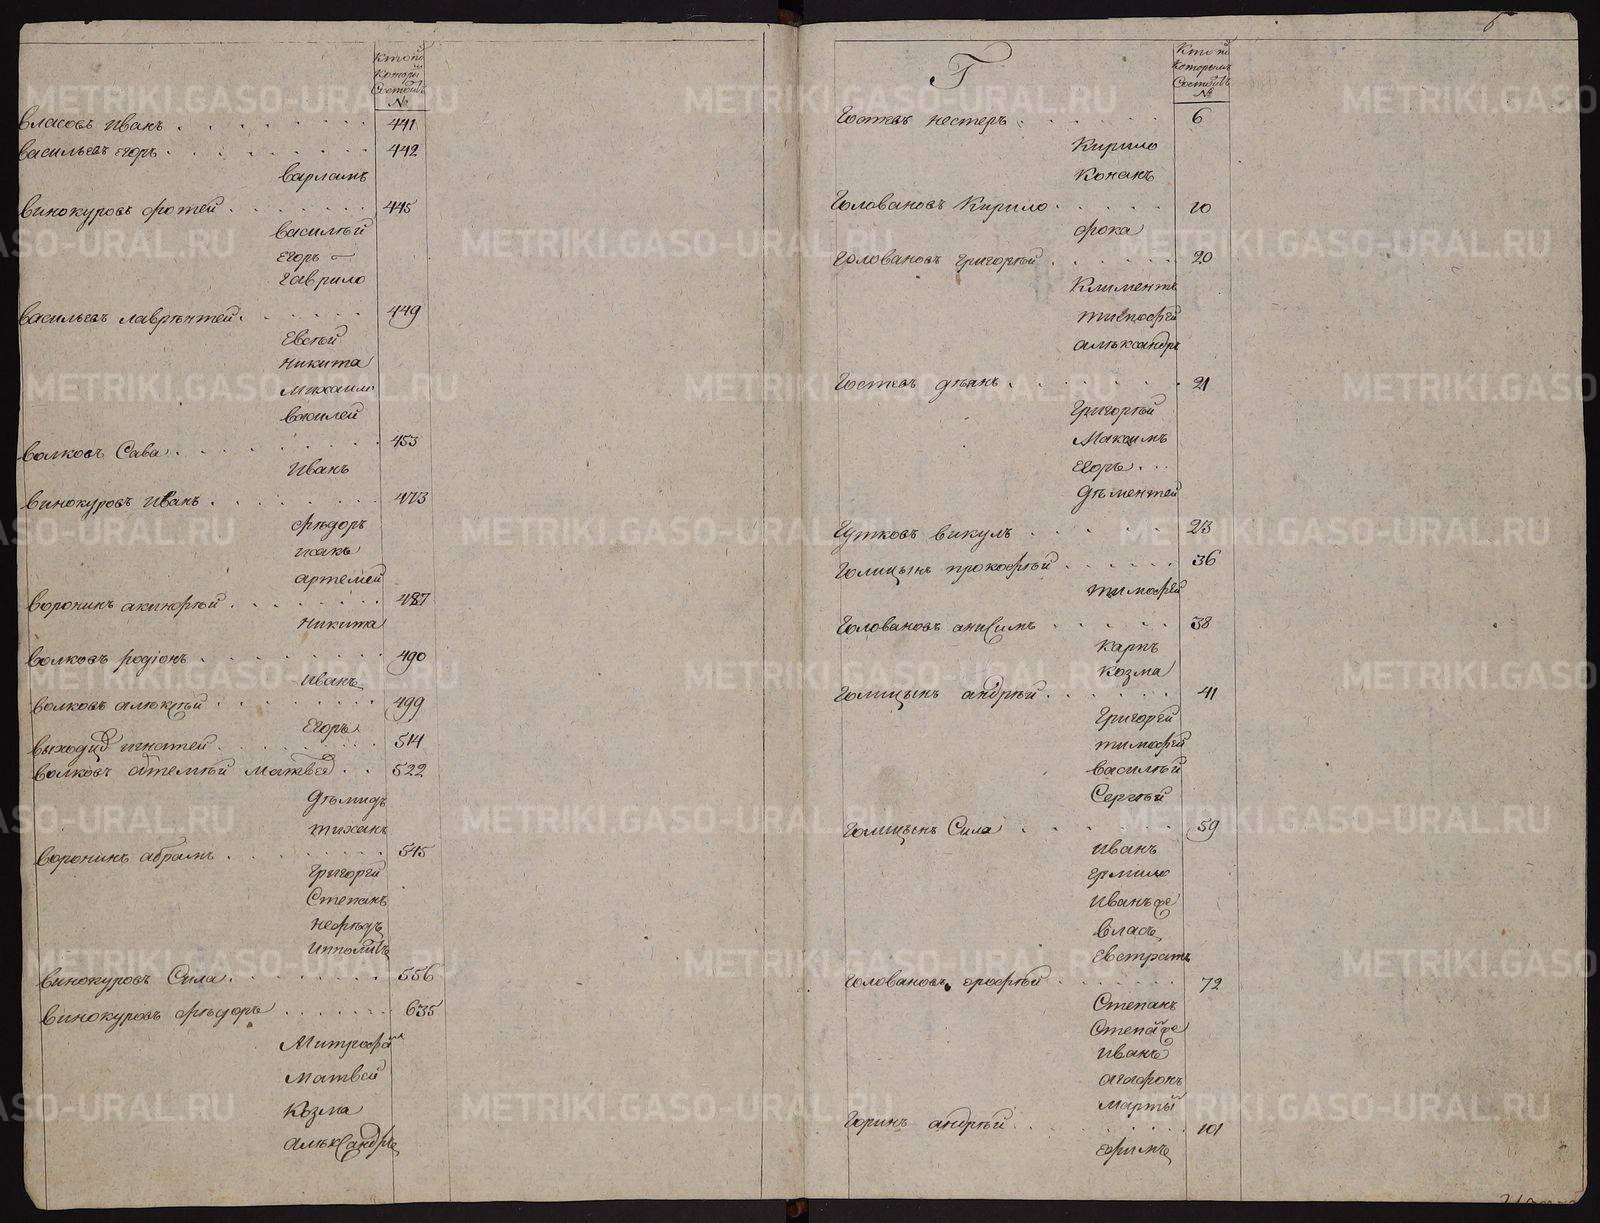 Кто по
которы
Состоитъ
№
власовъ иванъ 441
васильевъ егоръ 442
варламъ
винокуровъ фотей 445
василѣй
егоръ
гаврило
васильевъ лаврѣнтей 449
Евсѣй
никита
михаило
василей
волковъ Сава 453
иванъ
винокуровъ иванъ 473
фѣдоръ
исакъ
артемей
воронинъ акинфѣй 487
никита
волковъ родіонъ 490
иванъ
волковъ алѣксѣй 499
Егоръ
выходцѣ игнатей 514
волковъ артемѣй матвеѣ 522
дѣмидъ
тиханъ
воронинъ абрамъ 545
григорѣй
Степанъ
нефѣдъ
иполитъ
винокуровъ Сила 556
винокуровъ фѣдоръ 635
Митрофанъ
матвей
козма
алѣксандръ
Г
Кто по
которымъ
Состоитъ
№
Гостевъ нестеръ 6
Кирило
Конанъ
Головановъ Кирило 10
фока
Головановъ григорѣй 20
Климентъ
тимофей
алѣксандръ
Гостевъ дѣянъ 21
григорѣй
Максимъ
егоръ
дѣментей
Гутковъ викулъ 23
Голицынъ прокофѣй 36
тимофей
Головановъ анисимъ 38
карпъ
козма
Голицынъ андрѣй 41
григорей
тимофей
василѣй
Сергѣй
Голицынъ Сила 59
иванъ
ермило
иванъ же
власъ
евстратъ
Головановъ ерофѣй 72
Степанъ
Степанъ же
иванъ
агафонъ
мартынъ
Горинъ андрѣй 101
ефимъ
METRIKI.GASO-URAL.RU